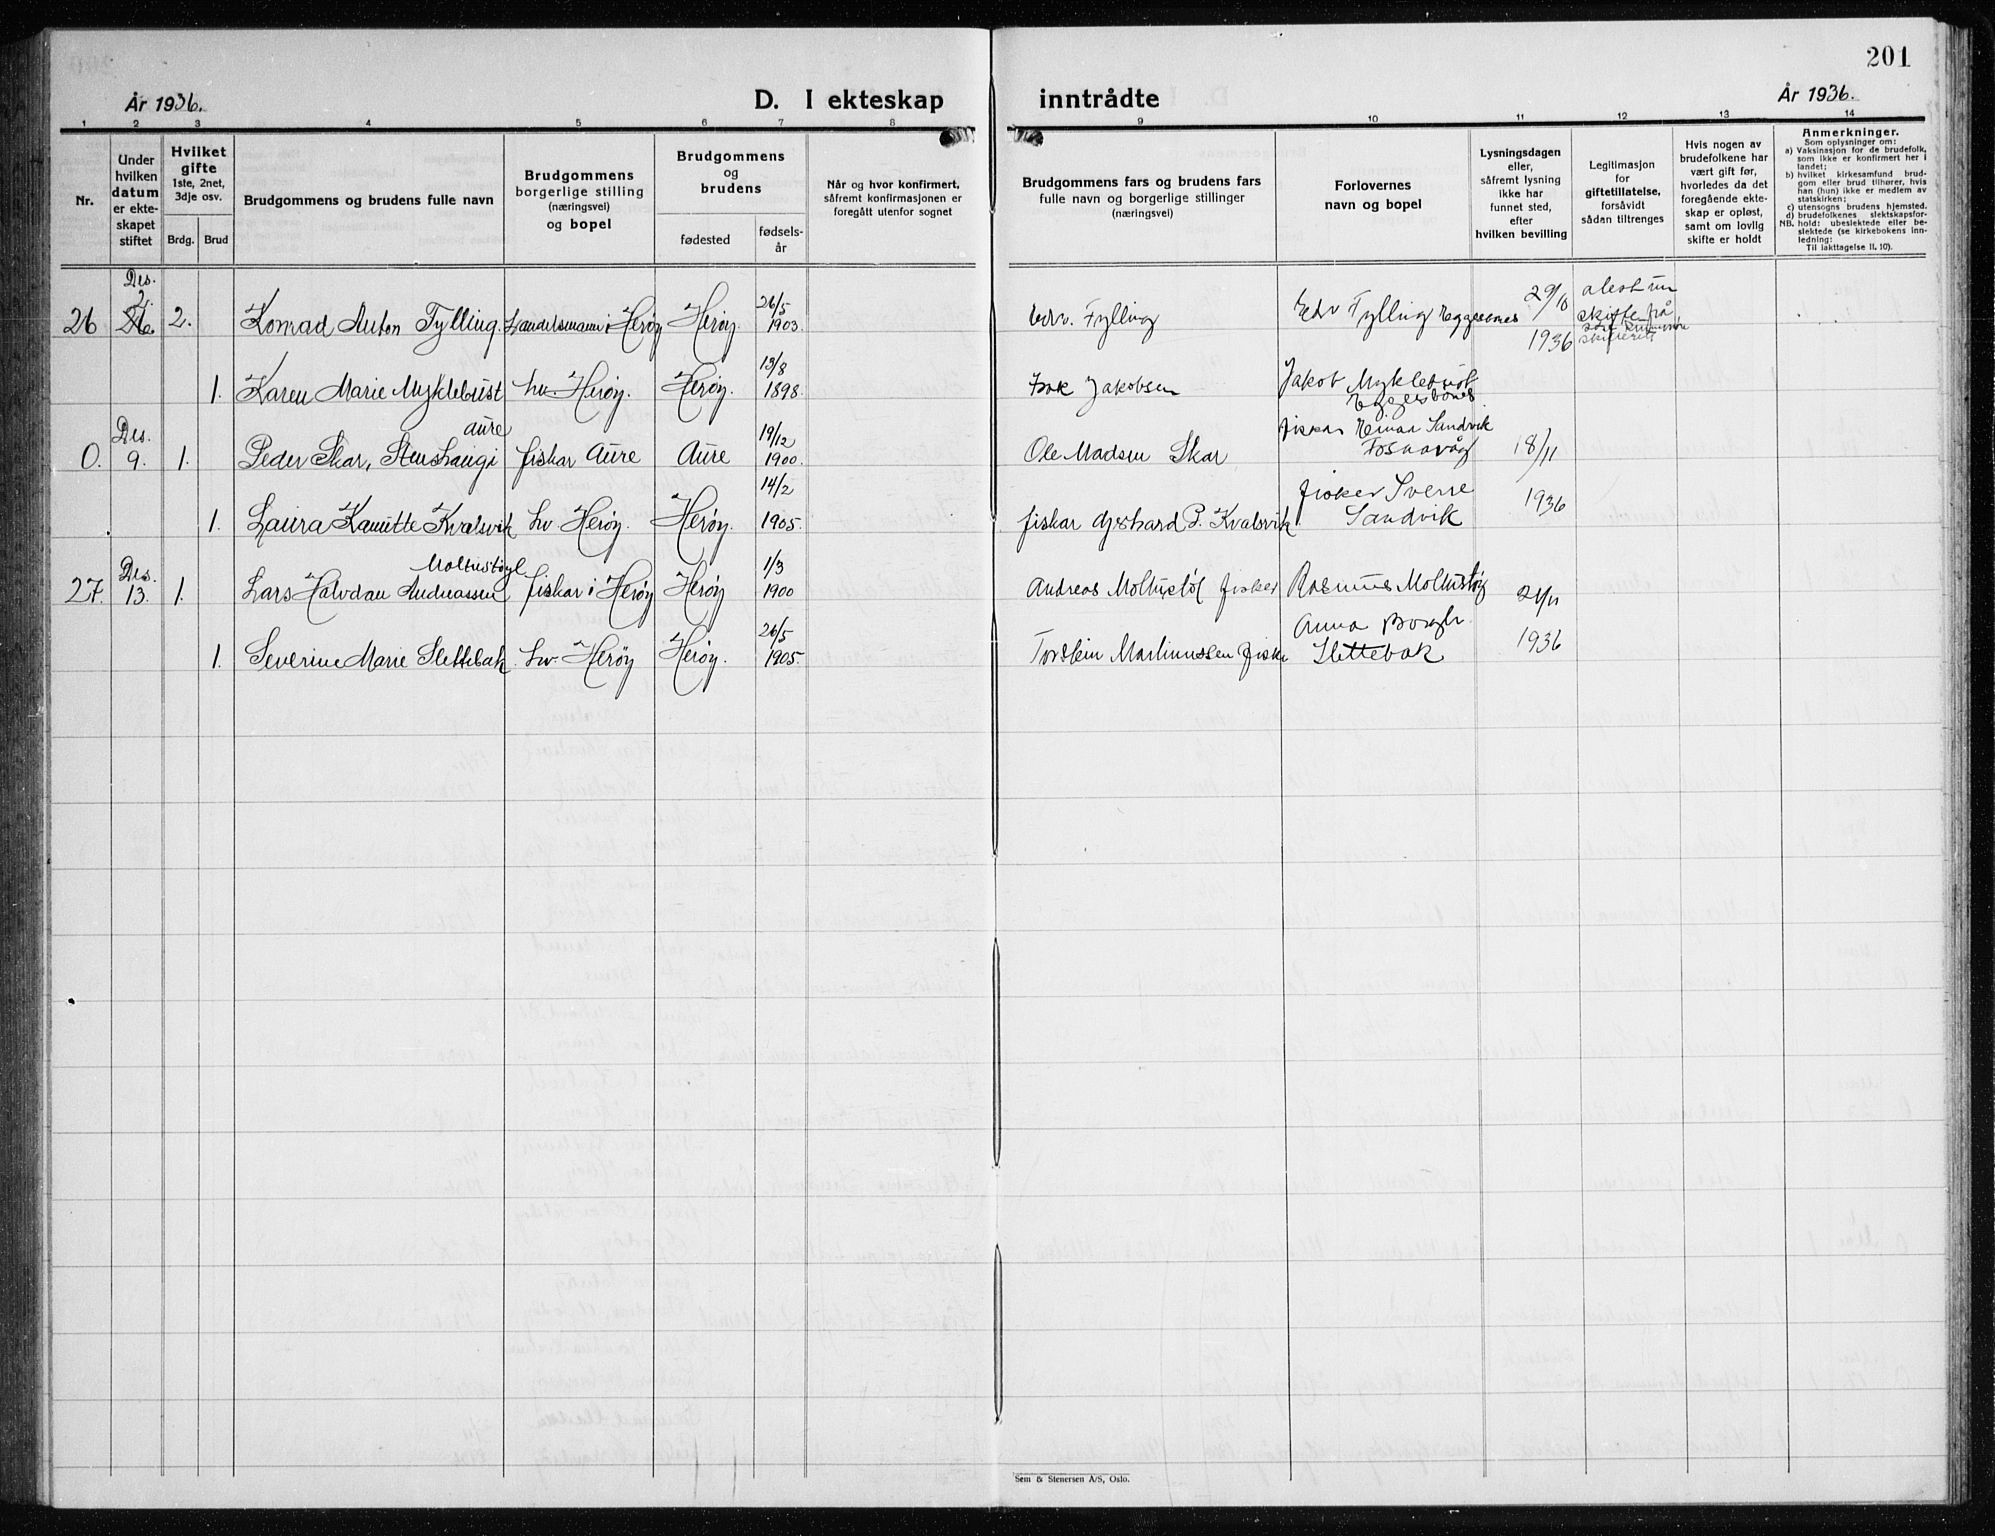 201
År 1936.
D. I ekteskap
inntrådte
År 1936.
1 2 3 4 5 6 7 8 9 10 11 12 13 14
Nr.
Under
hvilken
datum
er ekte-
skapet
stiftet
Hvilket
gifte
1ste, 2net,
3dje osv.
Brdg. Brud
Brudgommens og brudens fulle navn
Brudgommens
borgerlige stilling
(næringsvei)
og bopel
Brudgommens
og
brudens
fødested
fødsels-
år
Når og hvor konfirmert,
såfremt konfirmasjonen er
foregått utenfor sognet
Brudgommens fars og brudens fars
fulle navn og borgerlige stillinger
(næringsvei)
Forlovernes
navn og bopel
Lysningsdagen
eller,
såfremt lysning
ikke har
funnet sted,
efter
hvilken bevilling
Legitimasjon
for
giftetillatelse,
forsåvidt
sådan tiltrenges
Hvis nogen av
brudefolkene har
vært gift før,
hvorledes da det
foregående ekte-
skap er opløst,
samt om lovlig
skifte er holdt
Anmerkninger.
Som oplysninger om:
a) Vaksinasjon for de brudefolk,
som ikke er konfirmert her i
landet;
b) hvilket kirkesamfund brud-
gom eller brud tilhører, hvis
han (hun) ikke er medlem av
statskirken;
c) utensogns brudens hjemsted.
d) brudefolkenes slektskapsfor-
NB. hold: ubeslektede eller be-
slektede (se kirkebokens inn-
ledning:
Til iakttagelse II. 10).
Des.
2.
26 2. Konrad Anton Fylling. Handelsmann i Herøy Herøy. 26/5 1903. Edv. Fylling Edv Fylling Eggesbønes 29/10 1936 skifte frå
1. Karen Marie Myklebust hv. Herøy. Herøy. 13/8 1898. Isak Jakobsen Jakob Myklebust Eggesbønes
Des. Aure
0. 9. 1. Peder Skar, Stenshaugi fiskar Aure Aure 19/12 1900. Ole Madsen Skar fiskar Einar Sandvik Fosnavåg 18/11
1. Laura Kanutte Kvalsvik hv. Herøy. Herøy. 14/2 1905. fiskar Gjerhard P. Kvalsvik fisker Sverre Sandvik 1936
Des. Moltustøyl
27. 13. 1. Lars Halvdan Andreassen fiskar i Herøy Herøy 1/3 1900 Andreas Moltustøl fisker Rasmus Moltustøy 21/11
1. Severine Marie Slettebak hv. Herøy Herøy. 26/5 1905. Torstein Martinussen fiske Anna Borgh. Slettebak 1936
Sem & Stenersen A/S, Oslo.